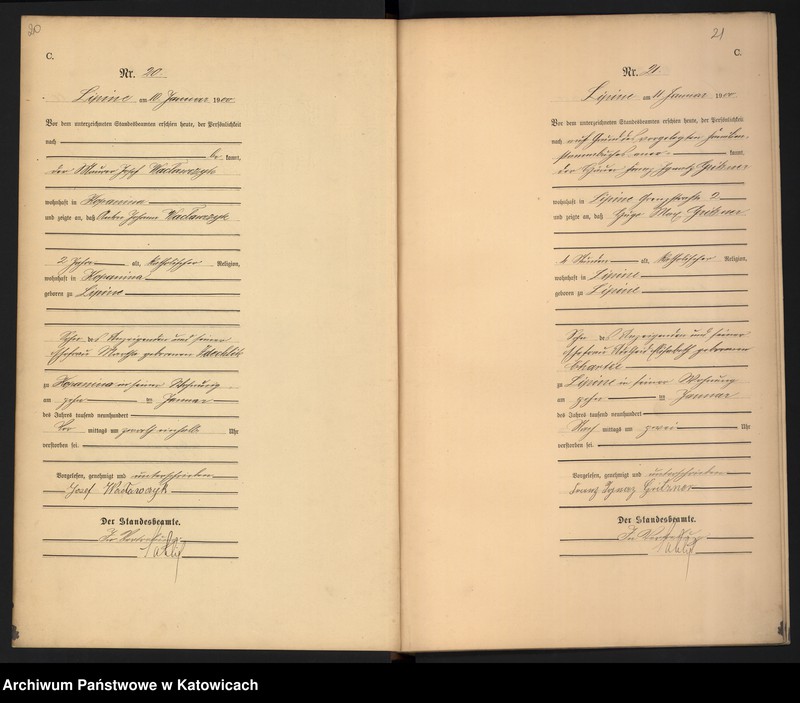 20
C.
Nr. 20.
Lipine am 10. Januar 1900
Vor dem unterzeichneten Standesbeamten erschien heute, der Persönlichkeit
nach
be kannt,
der Maurer Josef Wactawczyk
wohnhaft in Kopanina
und zeigte an, daß Anton Johann Wactawczyk
2 Jahre alt, katholischer Religion,
wohnhaft in Kopanina
geboren zu Lipine
Sohn des Anzeigenden und seiner
Ehefrau Martha geborenen
zu Kopanina in seiner Wohnung
am zehn ten Januar
des Jahres tausend neunhundert
Vor mittags um zwölf einhalb Uhr
verstorben sei.
Vorgelesen, genehmigt und unterschrieben
Josef Wactawczyk
Der Standesbeamte.
In Vertretung
21
C.
Nr. 21.
Lipine am 11 Januar 1900
Vor dem unterzeichneten Standesbeamten erschien heute, der Persönlichkeit
nach auf Grund des vorgelegten Familien-
stammbuches aner- kannt,
der Häuer Franz Ignatz Gritzner
wohnhaft in Lipine Grenzstraße 2
und zeigte an, daß Hugo Max Gritzner
4 Stunden alt, katholischer Religion,
wohnhaft in Lipine
geboren zu Lipine
Sohn des Anzeigenden und seiner
Ehefrau Adelheid Elisabeth geborenen
zu Lipine in seiner Wohnung
am zehn ten Januar
des Jahres tausend neunhundert
Nach mittags um zwei Uhr
verstorben sei.
Vorgelesen, genehmigt und unterschrieben
Franz Ignaz Gritzner
Der Standesbeamte.
In Vertretung
Archiwum Państwowe w Katowicach